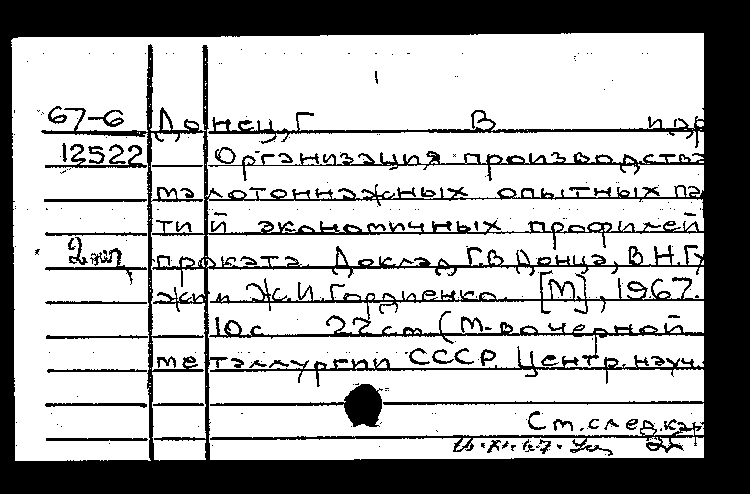 67-6 Донец, Г В и др
12522 Организация производства
малотоннажных опытных пар
тий экономичных профилей
2 экз проката. Доклад Г.В. Донца, В.Н. Гу
и Ж.И. Гордиенко. [М.], 1967.
10 с. 22 см (М-во черной
металлургии СССР. Центр. науч.
См. след. кар